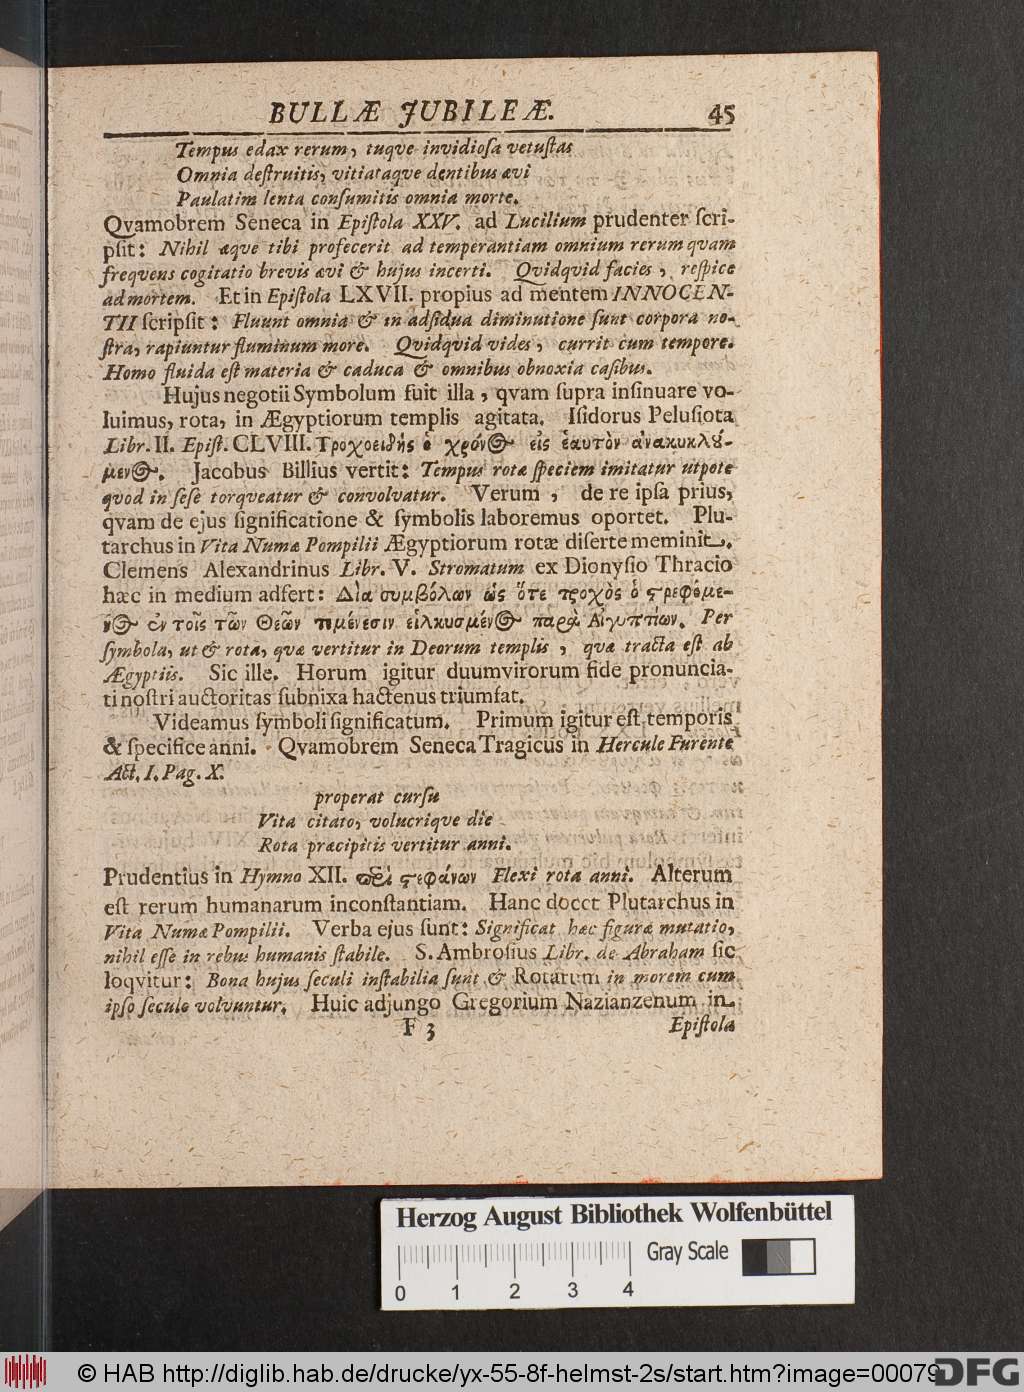 BULLÆ JUBILEÆ. 45
Tempus edax rerum, tuqve invidioſa vetuſtas
Omnia deſtruitis, vitiataqve dentibus ævi
Paulatim lenta conſumitis omnia morte.
Qvamobrem Seneca in Epiſtola XXV. ad Lucilium prudenter ſcri-
pſit: Nihil æque tibi profecerit ad temperantiam omnium rerum qvam
freqvens cogitatio brevis ævi & hujus incerti. Qvidqvid facies, reſpice
ad mortem. Et in Epiſtola LXVII. propius ad mentem INNOCEN-
TII ſcripſit: Fluunt omnia & in adſidua diminutione ſunt corpora no-
ſtra, rapiuntur fluminum more. Qvidqvid vides, currit cum tempore.
Homo fluida eſt materia & caduca & omnibus obnoxia caſibus.
Hujus negotii Symbolum fuit illa, qvam ſupra inſinuare vo-
luimus, rota, in Ægyptiorum templis agitata. Iſidorus Peluſiota
Libr. II. Epiſt. CLVIII. Τροχοειδής ὁ χρόν@ εἰς ἑαυτὸν ἀνακυκλȣ́-
μεν@. Jacobus Billius vertit: Tempus rotæ ſpeciem imitatur utpote
qvod in ſeſe torqveatur & convolvatur. Verum, de re ipſa prius,
qvam de ejus ſignificatione & ſymbolis laboremus oportet. Plu-
tarchus in Vita Numæ Pompilii Ægyptiorum rotæ diſerte meminit.
Clemens Alexandrinus Libr. V. Stromatum ex Dionyſio Thracio
hæc in medium adfert: Διὰ συμβόλων ὡς ὅτε τροχὸς ὁ ϛρεφόμε-
ν@ ἐν τοῖς τῶν Θεῶν τιμένεσιν εἱλκυσμέν@ παρὰ Αἰγυπτίων. Per
ſymbola, ut & rota, qvæ vertitur in Deorum templis, qvæ tracta eſt ab
Ægyptiis. Sic ille. Horum igitur duumvirorum fide pronuncia-
ti noſtri auctoritas ſubnixa hactenus triumfat.
Videamus ſymboli ſignificatum. Primum igitur eſt temporis
& ſpecifice anni. Qvamobrem Seneca Tragicus in Hercule Furente
Act. I. Pag. X.
properat curſu
Vita citato, volucrique die
Rota præcipitis vertitur anni.
Prudentius in Hymno XII. περὶ ϛεφάνων Flexi rota anni. Alterum
eſt rerum humanarum inconſtantiam. Hanc docet Plutarchus in
Vita Numæ Pompilii. Verba ejus ſunt: Significat hæc figuræ mutatio,
nihil eſſe in rebus humanis ſtabile. S. Ambroſius Libr. de Abraham ſic
loqvitur: Bona hujus ſeculi inſtabilia ſunt & Rotarum in morem cum
ipſo ſeculo volvuntur. Huic adjungo Gregorium Nazianzenum in
F 3 Epiſtola
Herzog August Bibliothek Wolfenbüttel
Gray Scale
0 1 2 3 4
© HAB http://diglib.hab.de/drucke/yx-55-8f-helmst-2s/start.htm?image=00079
DFG